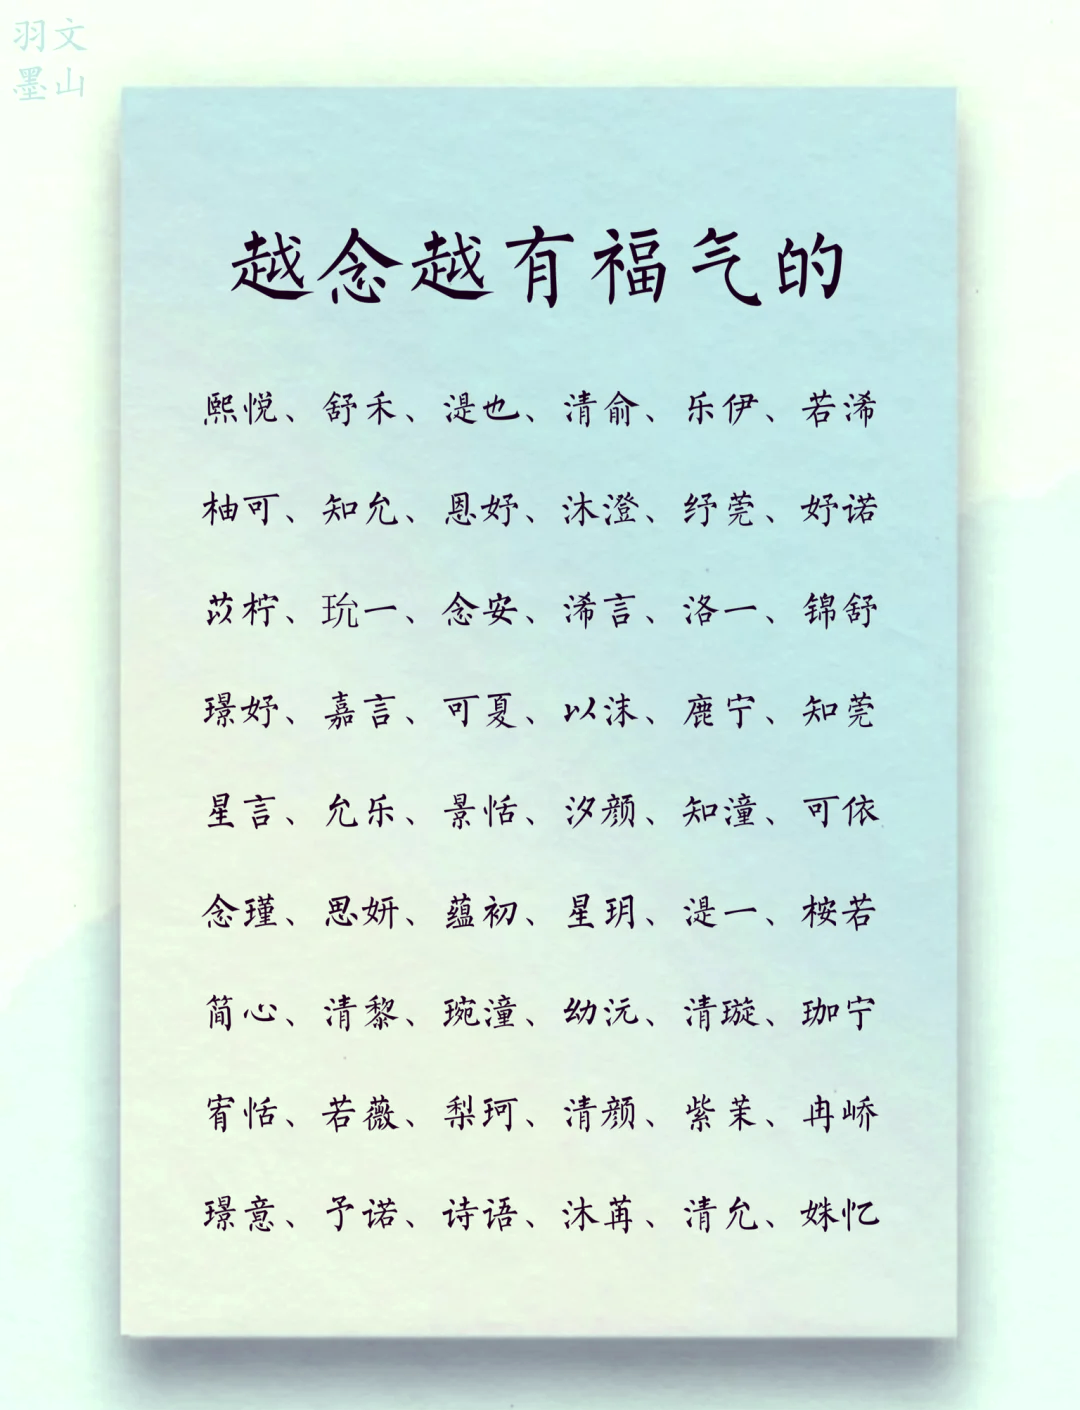 羽文
墨山
越念越有福气的
熙悦、舒禾、湜也、清俞、乐伊、若浠
柚可、知允、恩妤、沐澄、纾莞、妤诺
苡柠、玧一、念安、浠言、洛一、锦舒
璟妤、嘉言、可夏、以沫、鹿宁、知莞
星言、允乐、景恬、汐颜、知潼、可依
念瑾、思妍、蕴初、星玥、湜一、桉若
简心、清黎、琬潼、幼沅、清璇、珈宁
宥恬、若薇、梨珂、清颜、紫茉、冉峤
璟意、予诺、诗语、沐苒、清允、姝忆